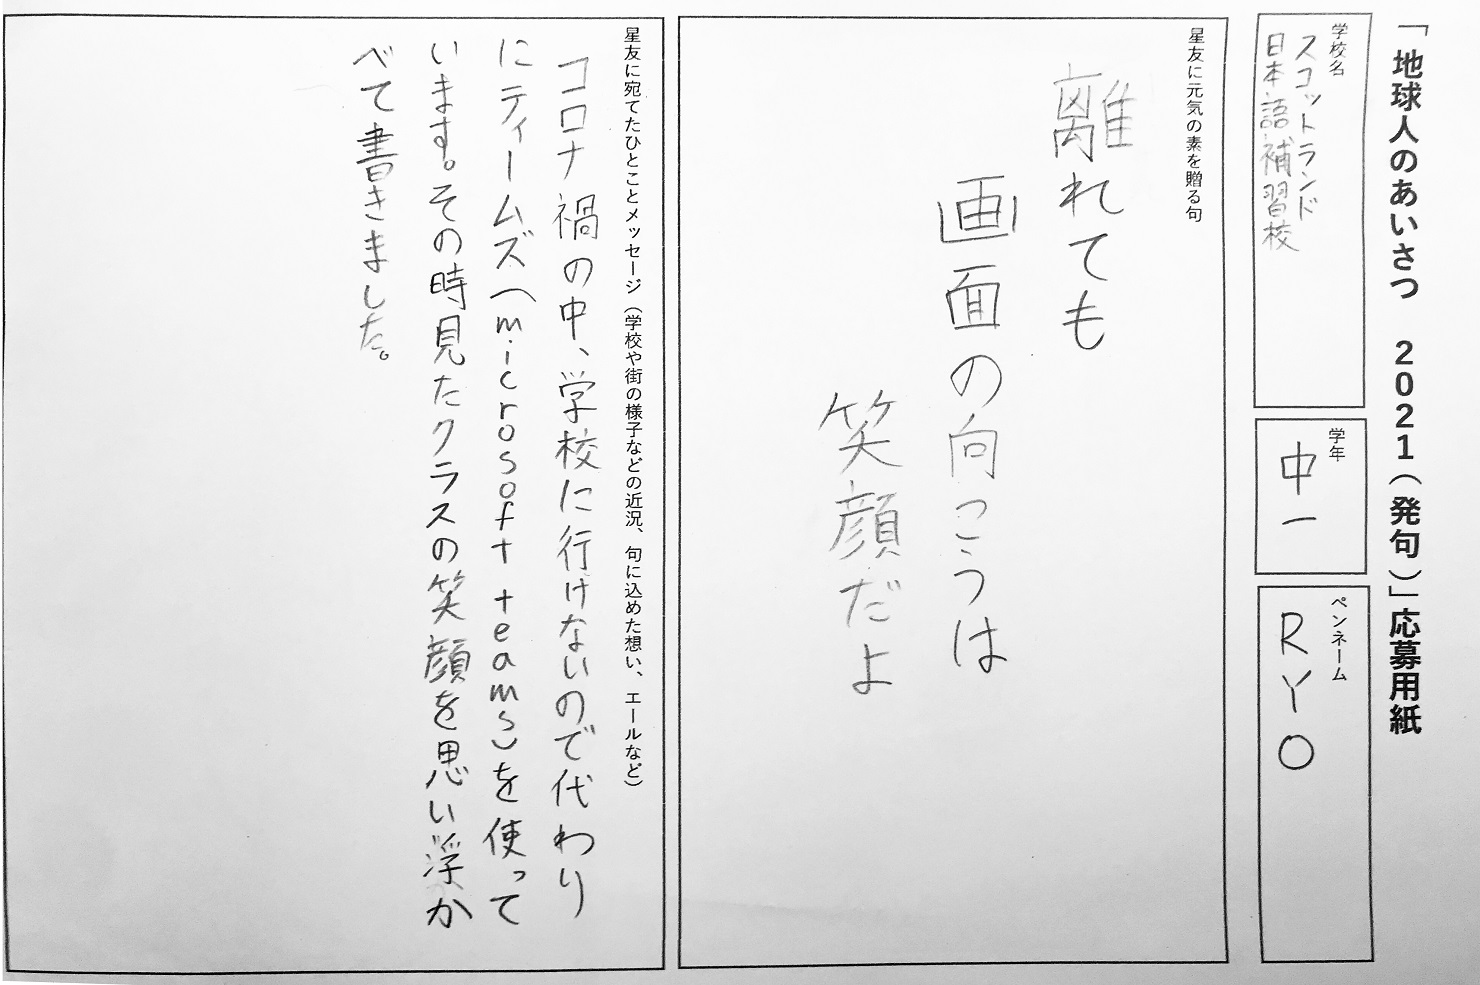 「地球人のあいさつ 2021(発句)」応募用紙
学校名
スコットランド
日本語補習校
学年
中一
ペンネーム
RYO
星友に元気の素を贈る句
離れても
画面の向こうは
笑顔だよ
星友に宛てたひとことメッセージ(学校や街の様子などの近況、句に込めた想い、エールなど)
コロナ禍の中、学校に行けないので代わり
にティームズ(microsoft teams)を使って
います。その時見たクラスの笑顔を思い浮か
べて書きました。